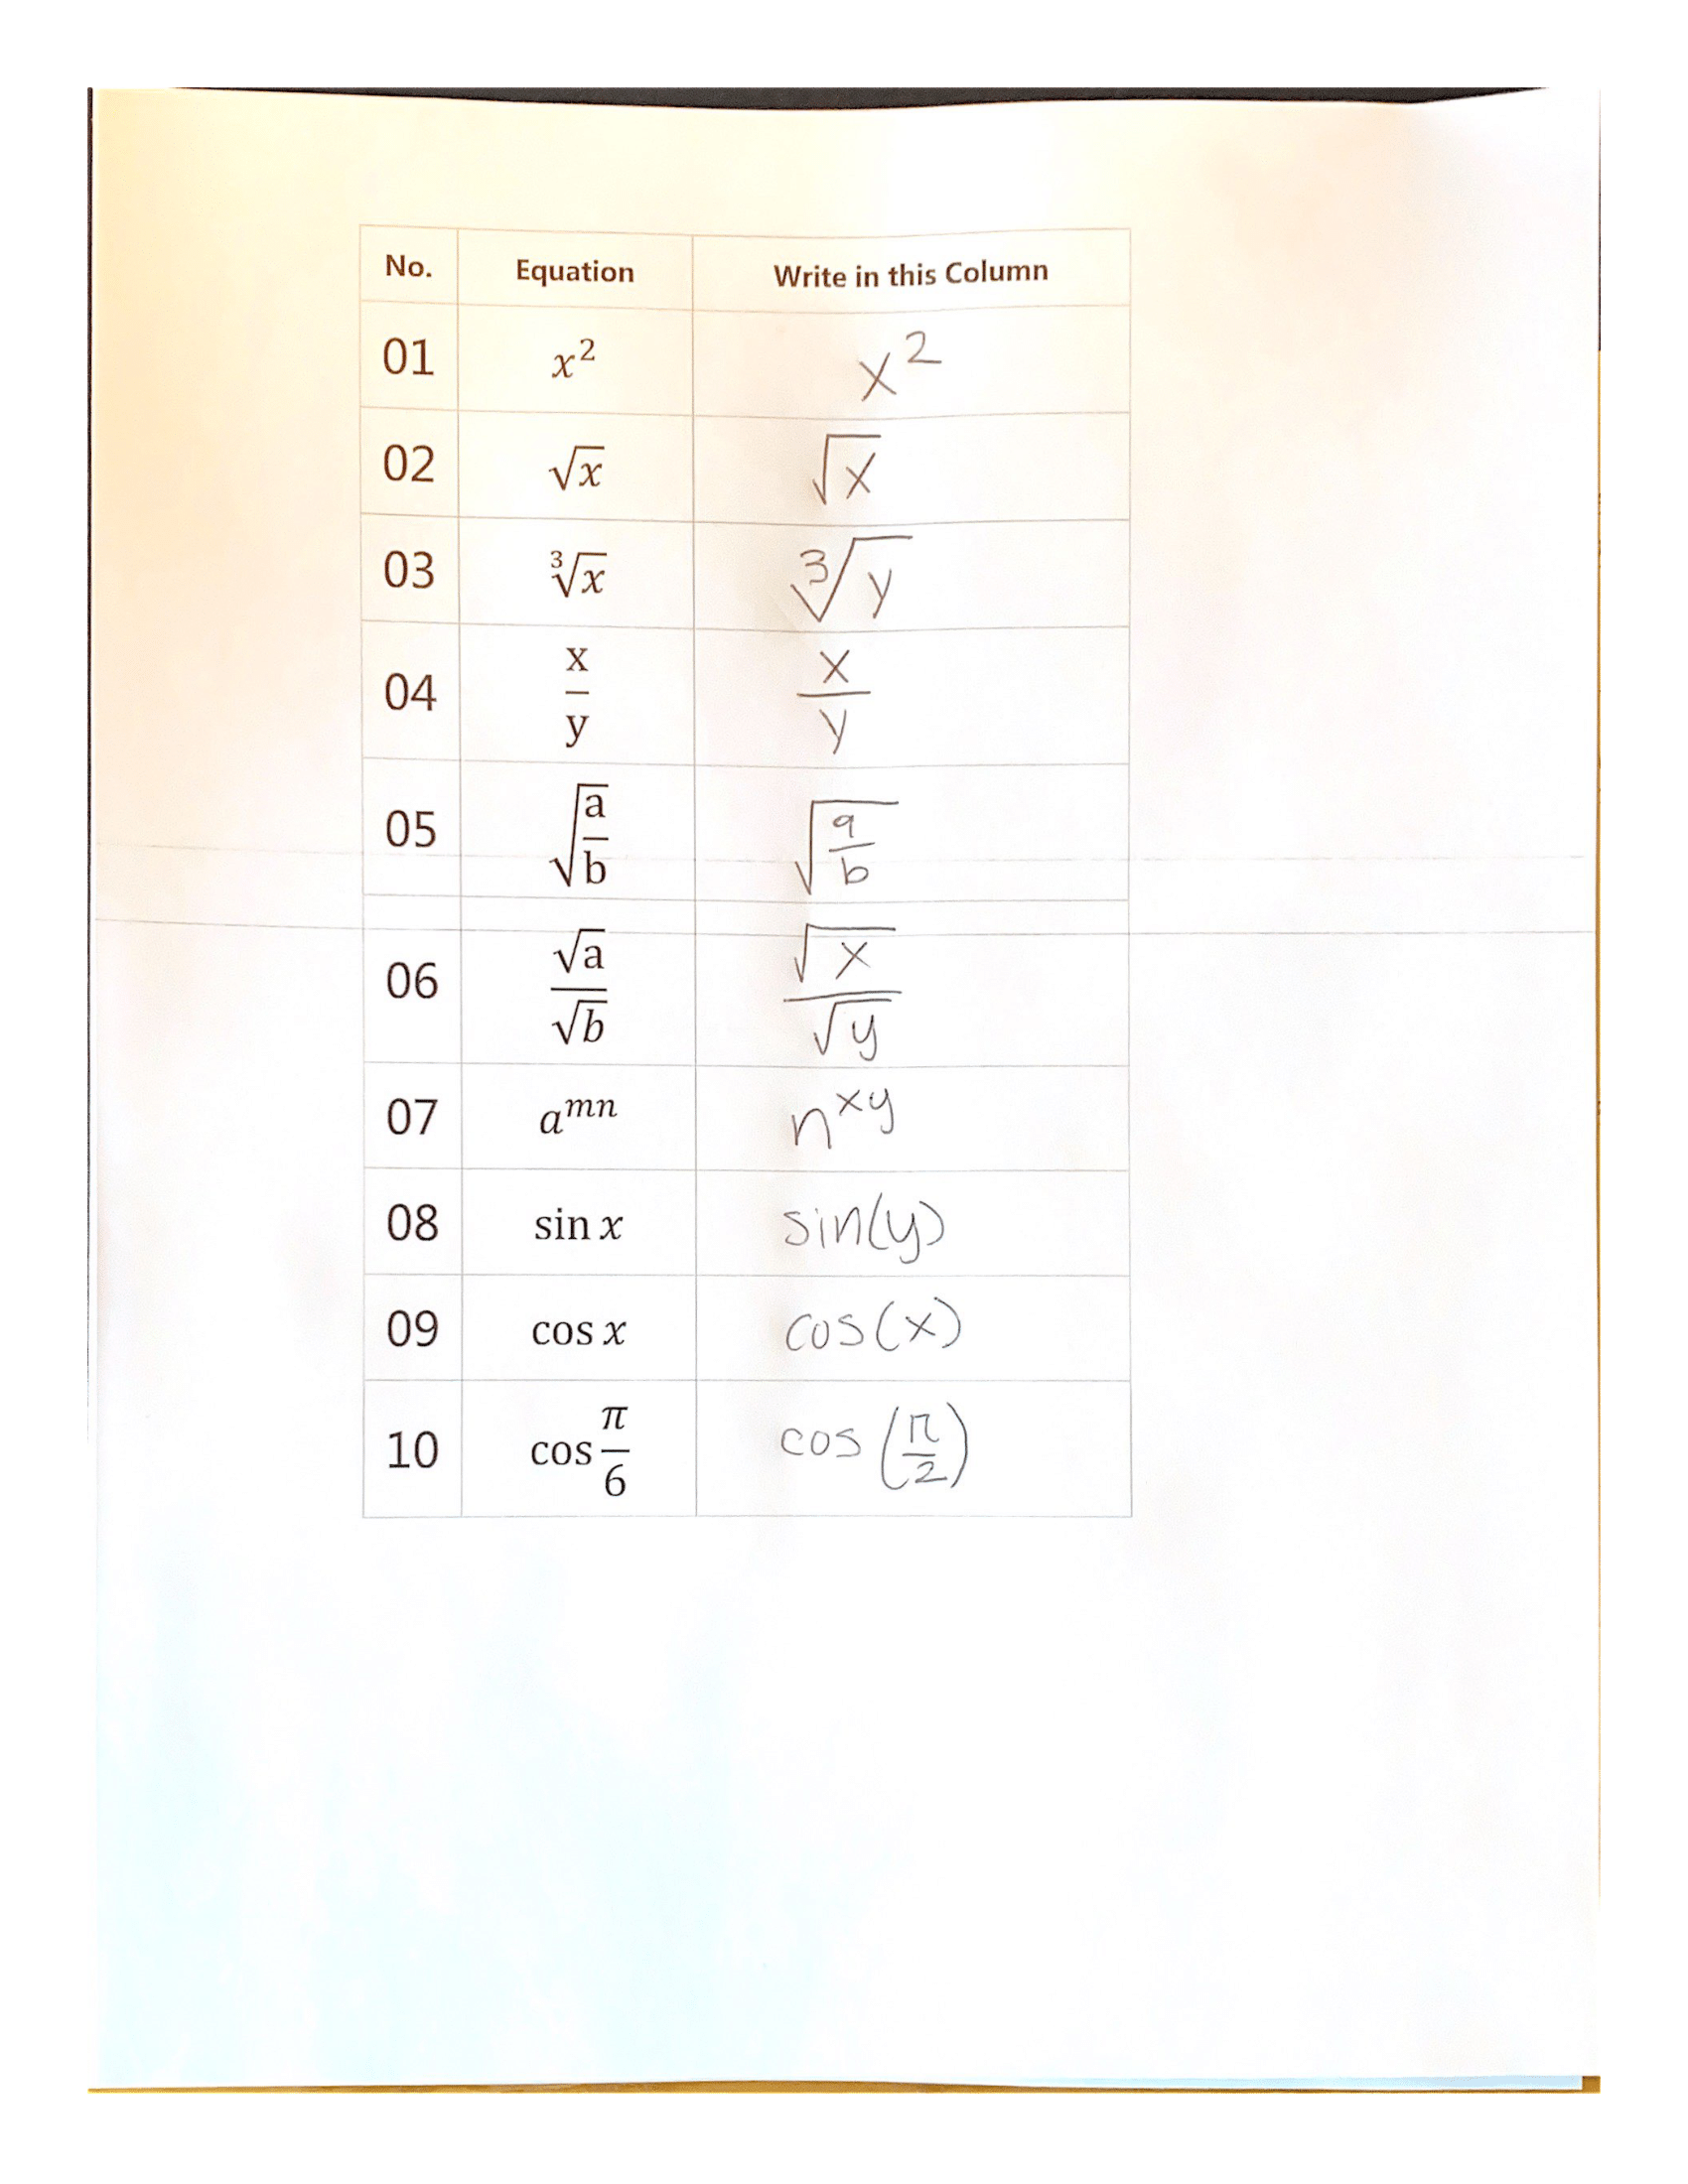 No. Equation Write in this Column
01 x² x²
02 √x √x
03 ∛x ∛y
04 x/y x/y
05 √(a/b) √(a/b)
06 √a/√b √x/√y
07 a^{mn} n^{xy}
08 sin x sin(y)
09 cos x cos(x)
10 cos π/6 cos (π/2)